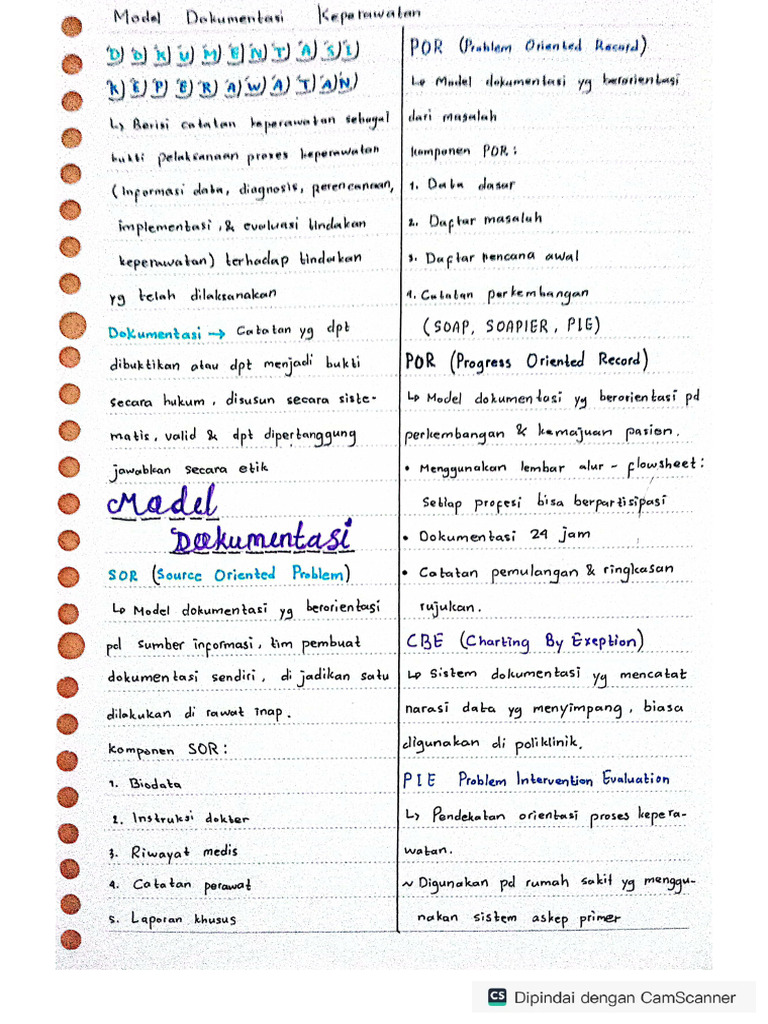 Model Dokumentasi Keperawatan
DOKUMENTASI
KEPERAWATAN
↳ Berisi catatan keperawatan sebagai
bukti pelaksanaan proses keperawatan
(Informasi data, diagnosis, perencanaan,
implementasi, & evaluasi tindakan
keperawatan) terhadap tindakan
yg telah dilaksanakan
Dokumentasi → Catatan yg dpt
dibuktikan atau dpt menjadi bukti
secara hukum, disusun secara siste-
matis, valid & dpt dipertanggung
jawabkan secara etik
Model
Dokumentasi
SOR (Source Oriented Problem)
↳ Model dokumentasi yg berorientasi
pd sumber informasi, tim pembuat
dokumentasi sendiri, di jadikan satu
dilakukan di rawat inap.
komponen SOR :
1. Biodata
2. Instruksi dokter
3. Riwayat medis
4. Catatan perawat
5. Laporan khusus
POR (Problem Oriented Record)
↳ Model dokumentasi yg berorientasi
dari masalah
komponen POR :
1. Data dasar
2. Daftar masalah
3. Daftar rencana awal
4. Catatan perkembangan
(SOAP, SOAPIER, PIE)
POR (Progress Oriented Record)
↳ Model dokumentasi yg berorientasi pd
perkembangan & kemajuan pasien.
• Menggunakan lembar alur - flowsheet :
Setiap profesi bisa berpartisipasi
• Dokumentasi 24 jam
• Catatan pemulangan & ringkasan
rujukan.
CBE (Charting By Exeption)
↳ Sistem dokumentasi yg mencatat
narasi data yg menyimpang, biasa
digunakan di poliklinik.
PIE Problem Intervention Evaluation
↳ Pendekatan orientasi proses kepera-
watan.
~ Digunakan pd rumah sakit yg menggu-
nakan sistem askep primer
CS Dipindai dengan CamScanner